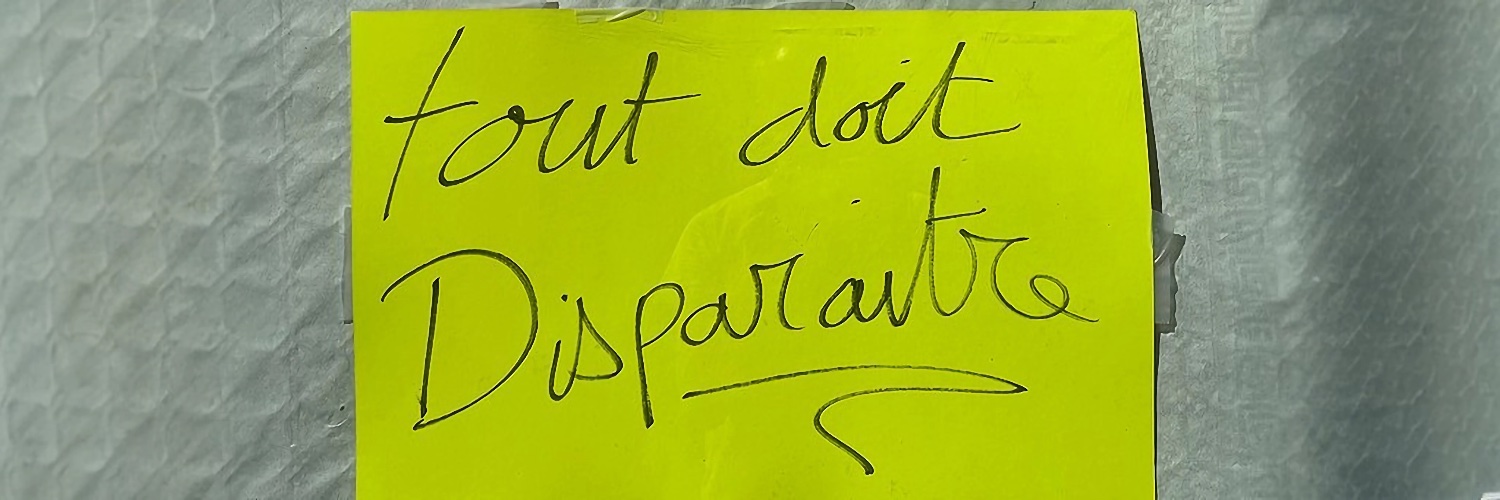 tout doit
Disparaitre